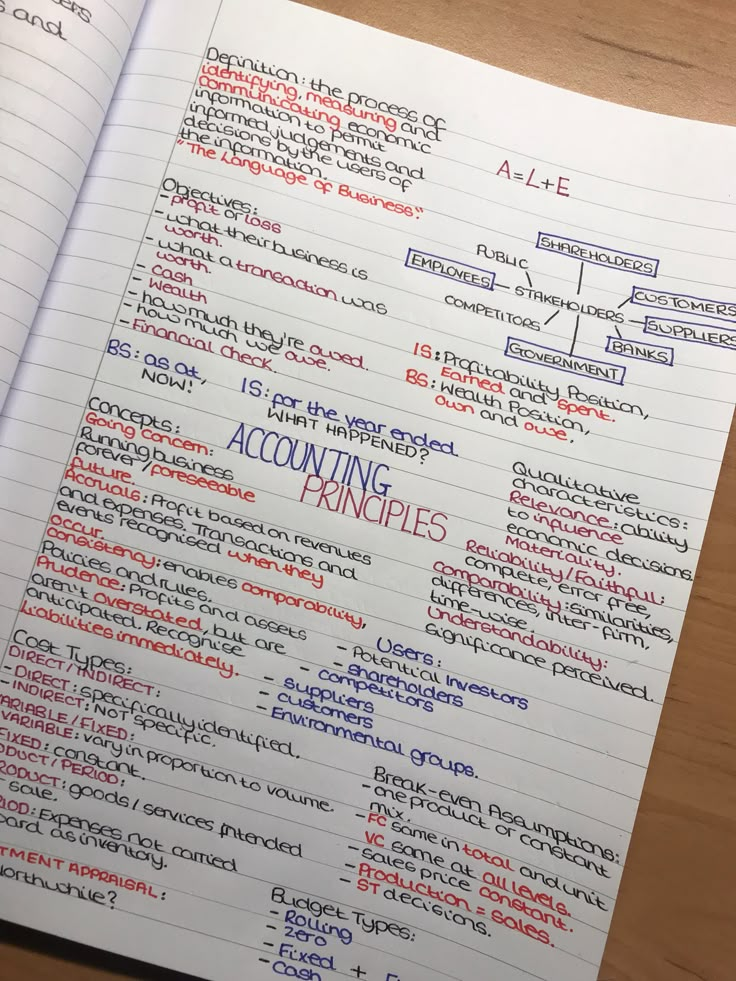 s and
Definition: the process of
identifying, measuring and
communicating economic
information to permit
informed judgements and
decisions by the users of
the information.
"The Language of Business."
A=L+E
Objectives:
- profit or loss
- what their business is
worth.
- what a transaction was
worth.
- cash
- wealth
- how much they're owed.
- how much we owe.
- Financial check.
PUBLIC
SHAREHOLDERS
EMPLOYEES
STAKEHOLDERS
CUSTOMERS
COMPETITORS
SUPPLIERS
BANKS
GOVERNMENT
IS: Profitability Position,
Earned and Spent.
BS: Wealth Position,
Own and owe.
BS: as at,
NOW!
IS: for the year ended.
WHAT HAPPENED?
ACCOUNTING
PRINCIPLES
Concepts:
Going Concern:
Running business
forever / foreseeable
future.
Accruals: Profit based on revenues
and expenses. Transactions and
events recognised when they
occur.
Consistency: enables comparability,
Policies and rules.
Prudence: Profits and assets
aren't overstated, but are
anticipated. Recognise
liabilities immediately.
Qualitative
characteristics:
Relevance: ability
to influence
economic decisions
Materiality.
Reliability/Faithful:
complete, error free,
Comparability: similarities,
differences, inter-firm,
time-wise.
Understandability:
significance perceived.
Users:
- Potential Investors
- shareholders
- competitors
- suppliers
- customers
- Environmental groups.
Cost Types:
DIRECT / INDIRECT:
- DIRECT: specifically identified.
- INDIRECT: NOT specific.
VARIABLE: vary in proportion to volume.
constant.
goods / services intended
sale.
Expenses not carried
as inventory.
APPRAISAL:
Break-even Assumptions:
- one product or constant
mix.
- FC same in total and unit
VC same at all levels.
- sales price constant.
- Production = Sales.
- ST decisions.
Budget Types:
- Rolling
- Zero
- Fixed +
- Cash